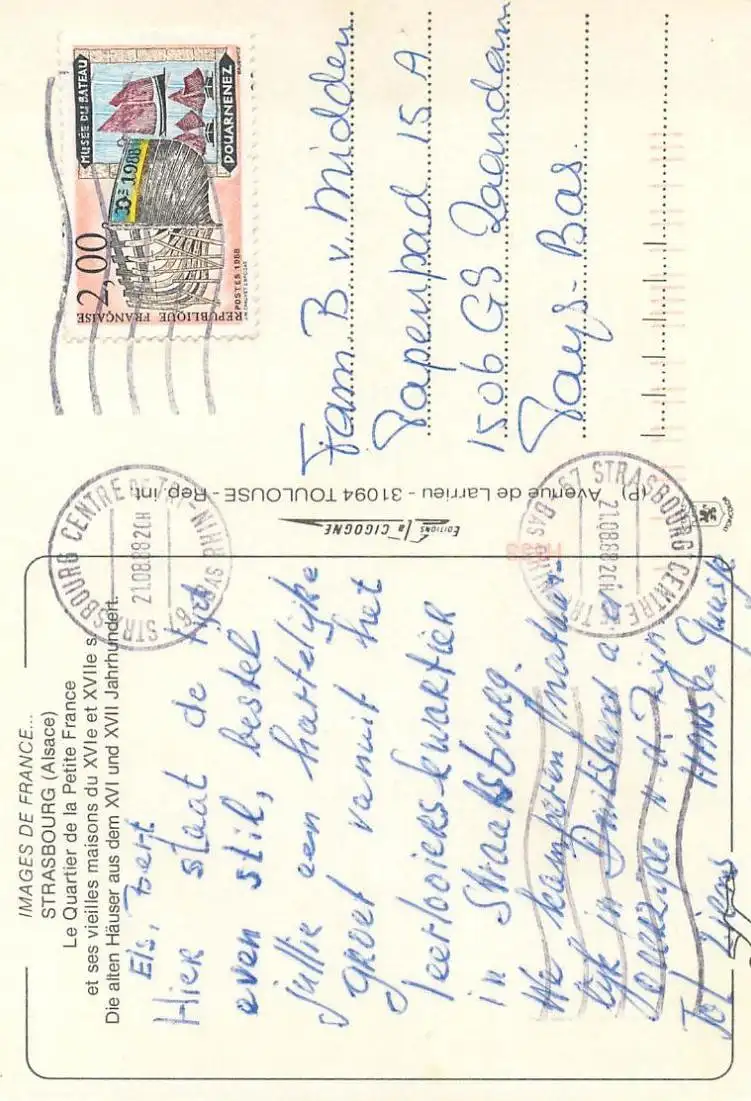 IMAGES DE FRANCE...
STRASBOURG (Alsace)
Le Quartier de la Petite France
et ses vieilles maisons du XVIe et XVIIe s.
Die alten Häuser aus dem XVI und XVII Jahrhundert.
Els, Bert
Hier staat de tijd
even stil, bestel
jullie een hartelijke
groet vanuit het
leerlooierskwartier
in Straatsburg.
We kamperen natuur-
lijk in Duitsland a.d.
v.d. Rijn
Tot ziens HANS &
EDITIONS la CIGOGNE
(P) Avenue de Larrieu - 31094 TOULOUSE - Rep. int.
67 STRASBOURG CENTRE DE TRI
BAS RHIN
21.08.88 20H
67 STRASBOURG CENTRE DE TRI
BAS RHIN
21.08.88 20H
MUSÉE DU BATEAU
DOUARNENEZ
Dz 1988
2,00
POSTES 1988
REPUBLIQUE FRANÇAISE
Fam B v. Midden
Papenpad 15 A
1506 GS Zaandam
Pays-Bas.